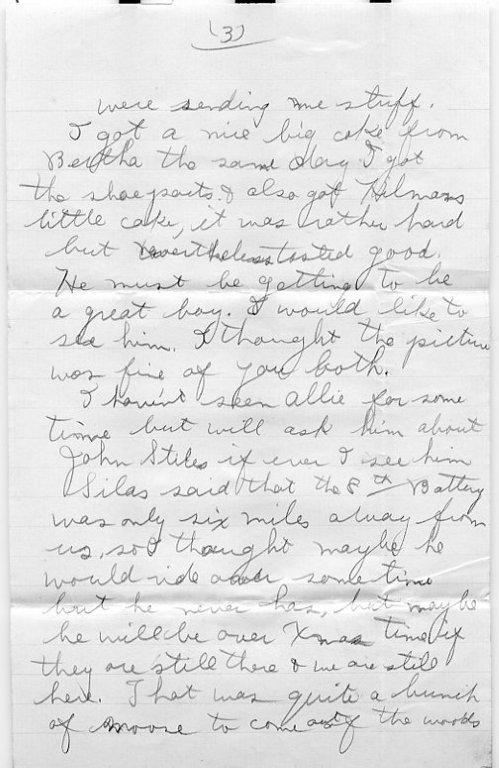 (3)
were sending me stuff.
I got a nice big cake from
Bertha the same day I got
the shoepacts. & also got Hilmans
little cake, it was rather hard
but nevertheless tasted good.
He must be getting to be
a great boy. I would like to
see him. I thought the picture
was fine of you both.
I haven't seen Allie for some
time but will ask him about
John Stiles if ever I see him
Silas said that the 8th Battery
was only six miles away from
us, so I thought maybe he
would ride over some time
but he never has, but maybe
he will be over Xmas time if
they are still there & we are still
here. That was quite a bunch
of moose to come out of the woods